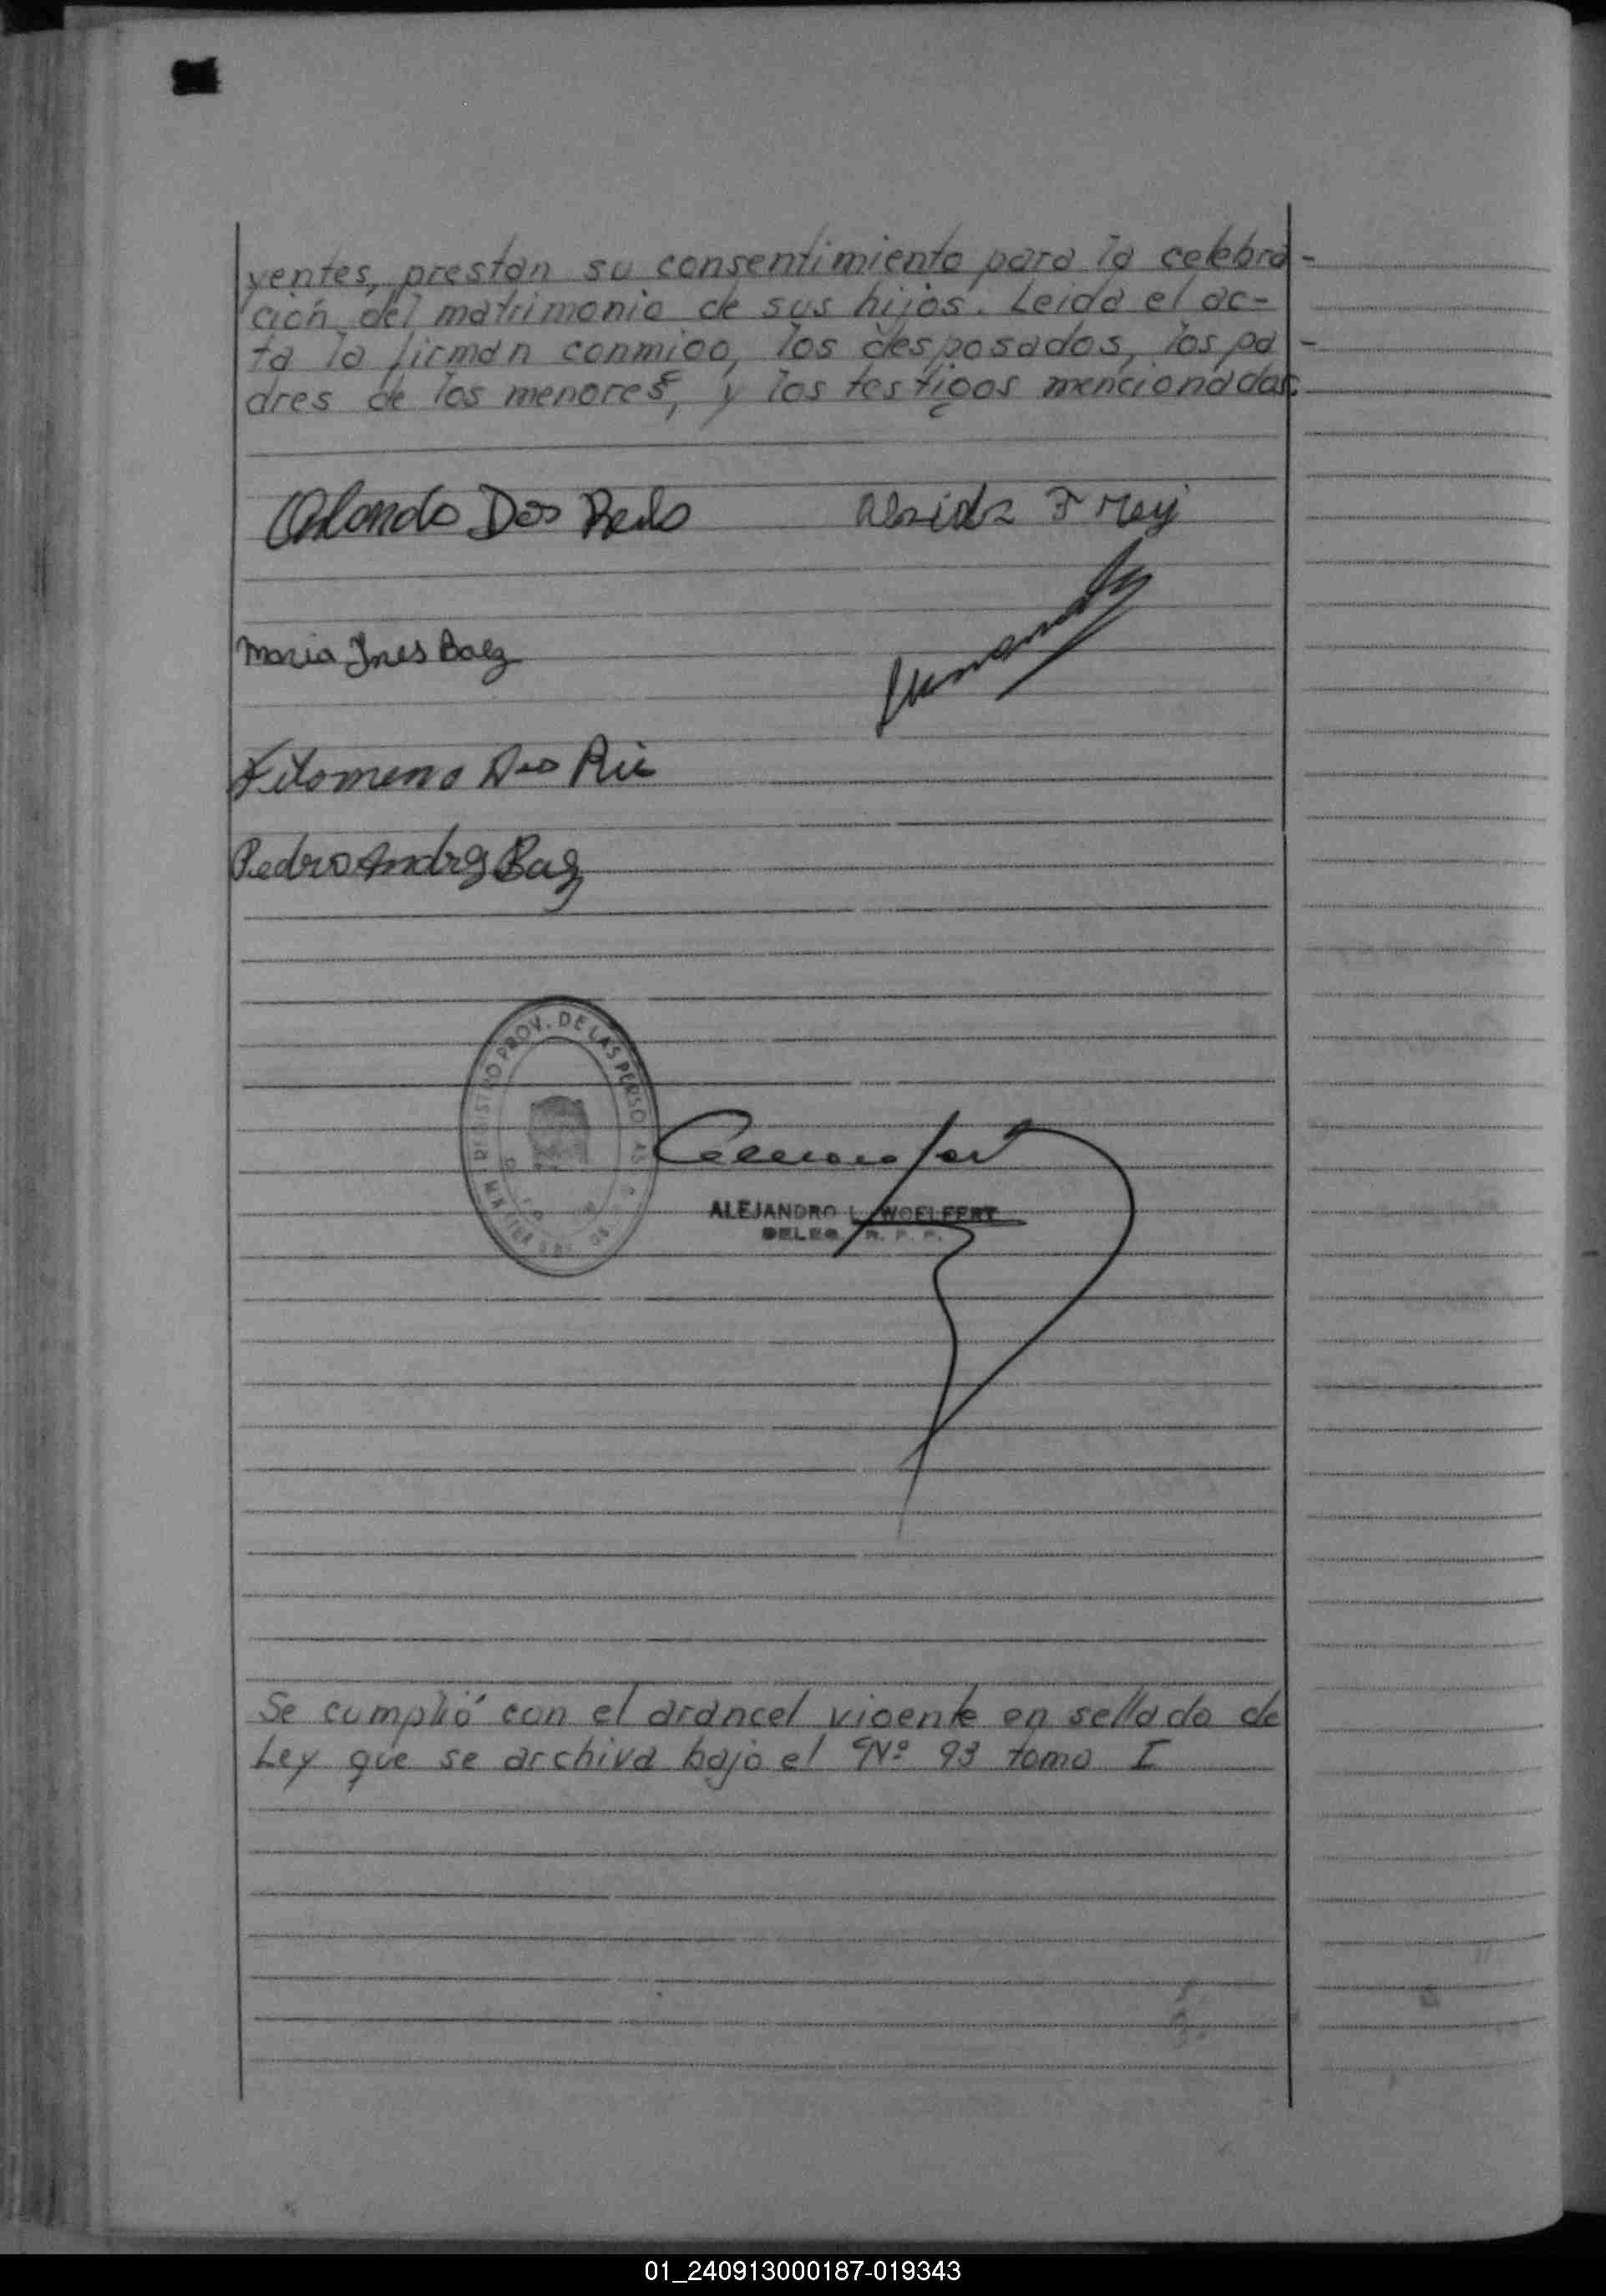 yentes, prestan su consentimiento para la celebra-
ción del matrimonio de sus hijos. Leida el ac-
ta la firman conmigo, los desposados, los pa-
dres de los menores, y los testigos mencionados.
Orlando Dos
Maria Ines Baez
Filomeno Dos
Pedro Andres Baez
REGISTRO PROV. DE LAS PERSONAS
ALEJANDRO L. WOELFERT
DELEG. R. P. P.
Se cumplió con el arancel vigente en sellado de
Ley que se archiva bajo el Nº 93 tomo I
01_240913000187-019343